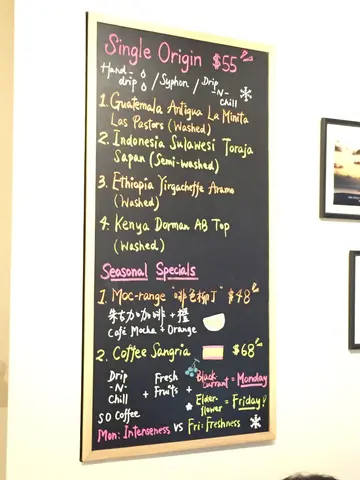 Single Origin $55
Hand-drip / Syphon / Drip -N- Chill
1. Guatemala Antigua La Minita
Las Pastors (Washed)
2. Indonesia Sulawesi Toraja
Sapan (Semi-washed)
3. Ethiopia Yirgacheffe Aramo
(Washed)
4. Kenya Dorman AB Top
(Washed)
Seasonal Specials
1. Moc-range "啡色柳丁" $48
朱古力咖啡 + 橙
Café Mocha + Orange
2. Coffee Sangria $68
Drip -N- Chill SO Coffee + Fresh Fruits + Black currant = Monday
Elder-flower = Friday!
Mon: Intenseness VS Fri: Freshness